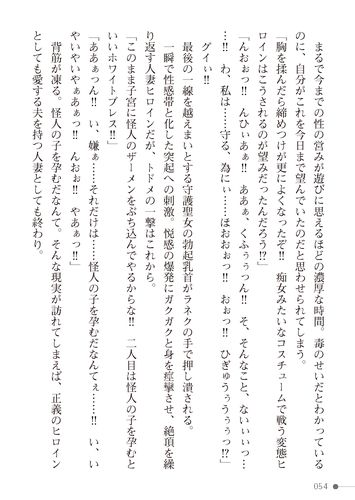 まるで今までの性の営みが遊びに思えるほどの濃厚な時間。毒のせいだとわかっている
のに、自分がこれを今日まで望んでいたのだと思わせられてしまう。
「胸を揉んだら締めつけが更によくなったぞ‼ 痴女みたいなコスチュームで戦う変態ヒ
ロインはこうされるのが望みだったんだろう⁉」
「んおぉっ‼ んひぃあぁ‼ ああぁ、くふぅぅっん‼ そ、そんなこと、ないぃぃっ…
…‼ わ、私は……守る、為にぃ……ほおおぉっ‼ おぉっ‼ ひぎゅうぅうぅぅっ⁉」
グイぃ‼
最後の一線を越えまいとする守護聖女の勃起乳首がラネクの手で押し潰される。
一瞬で性感帯と化した突起への刺激。悦感の爆発にガクガクと身を痙攣させ、絶頂を繰
り返す人妻ヒロインだが、トドメの一撃はこれから。
「このまま子宮に怪人のザーメンをぶち込んでやるからな‼ 二人目は怪人の子を孕むと
いいホワイトブレス‼」
「ああぁっん‼ い、嫌ぁ……それだけは……怪人の子を孕むだなんてぇ……‼ い、い
やいやいやぁあぁっ‼ んおぉ‼ やあぁっ‼」
背筋が凍る。怪人の子を孕むだなんて。そんな現実が訪れてしまえば、正義のヒロイン
としても愛する夫を持つ人妻としても終わり。
054